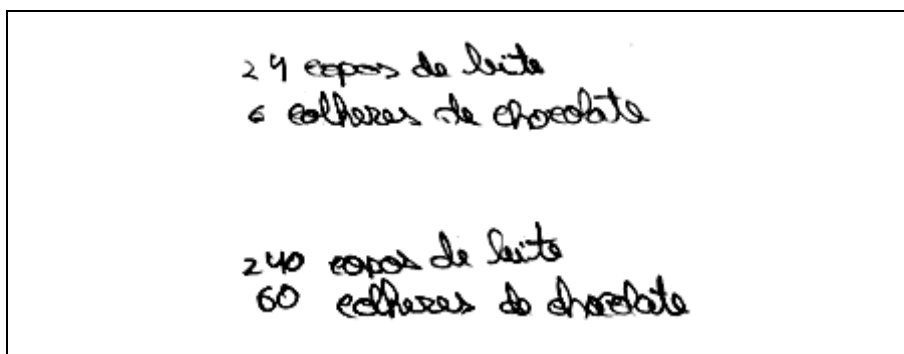 24 copos de leite
6 colheres de chocolate
240 copos de leite
60 colheres de chocolate